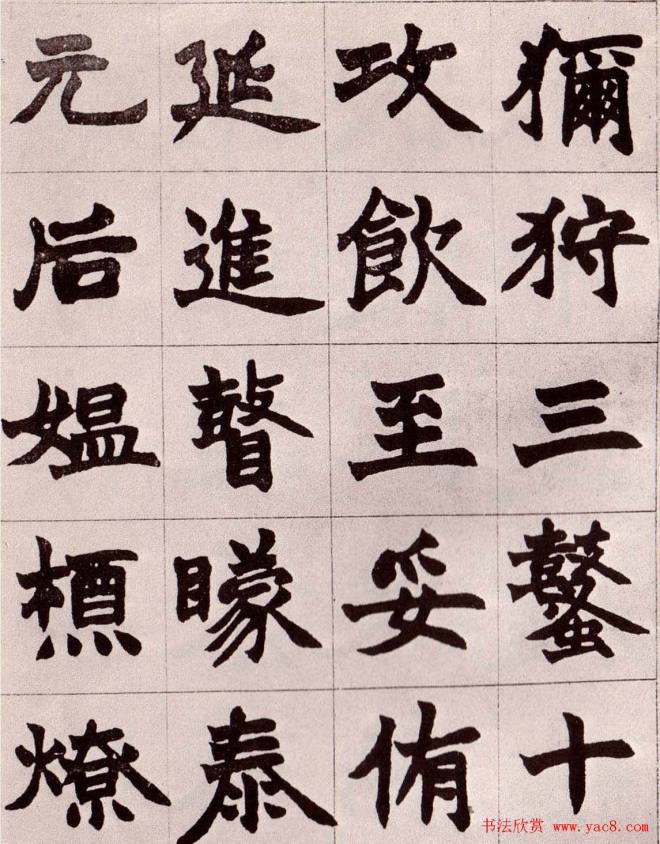 獮狩三鼜十
攻飲至妥侑
延進瞽矇泰
元后媼槱燎
书法欣赏 www.yac8.com